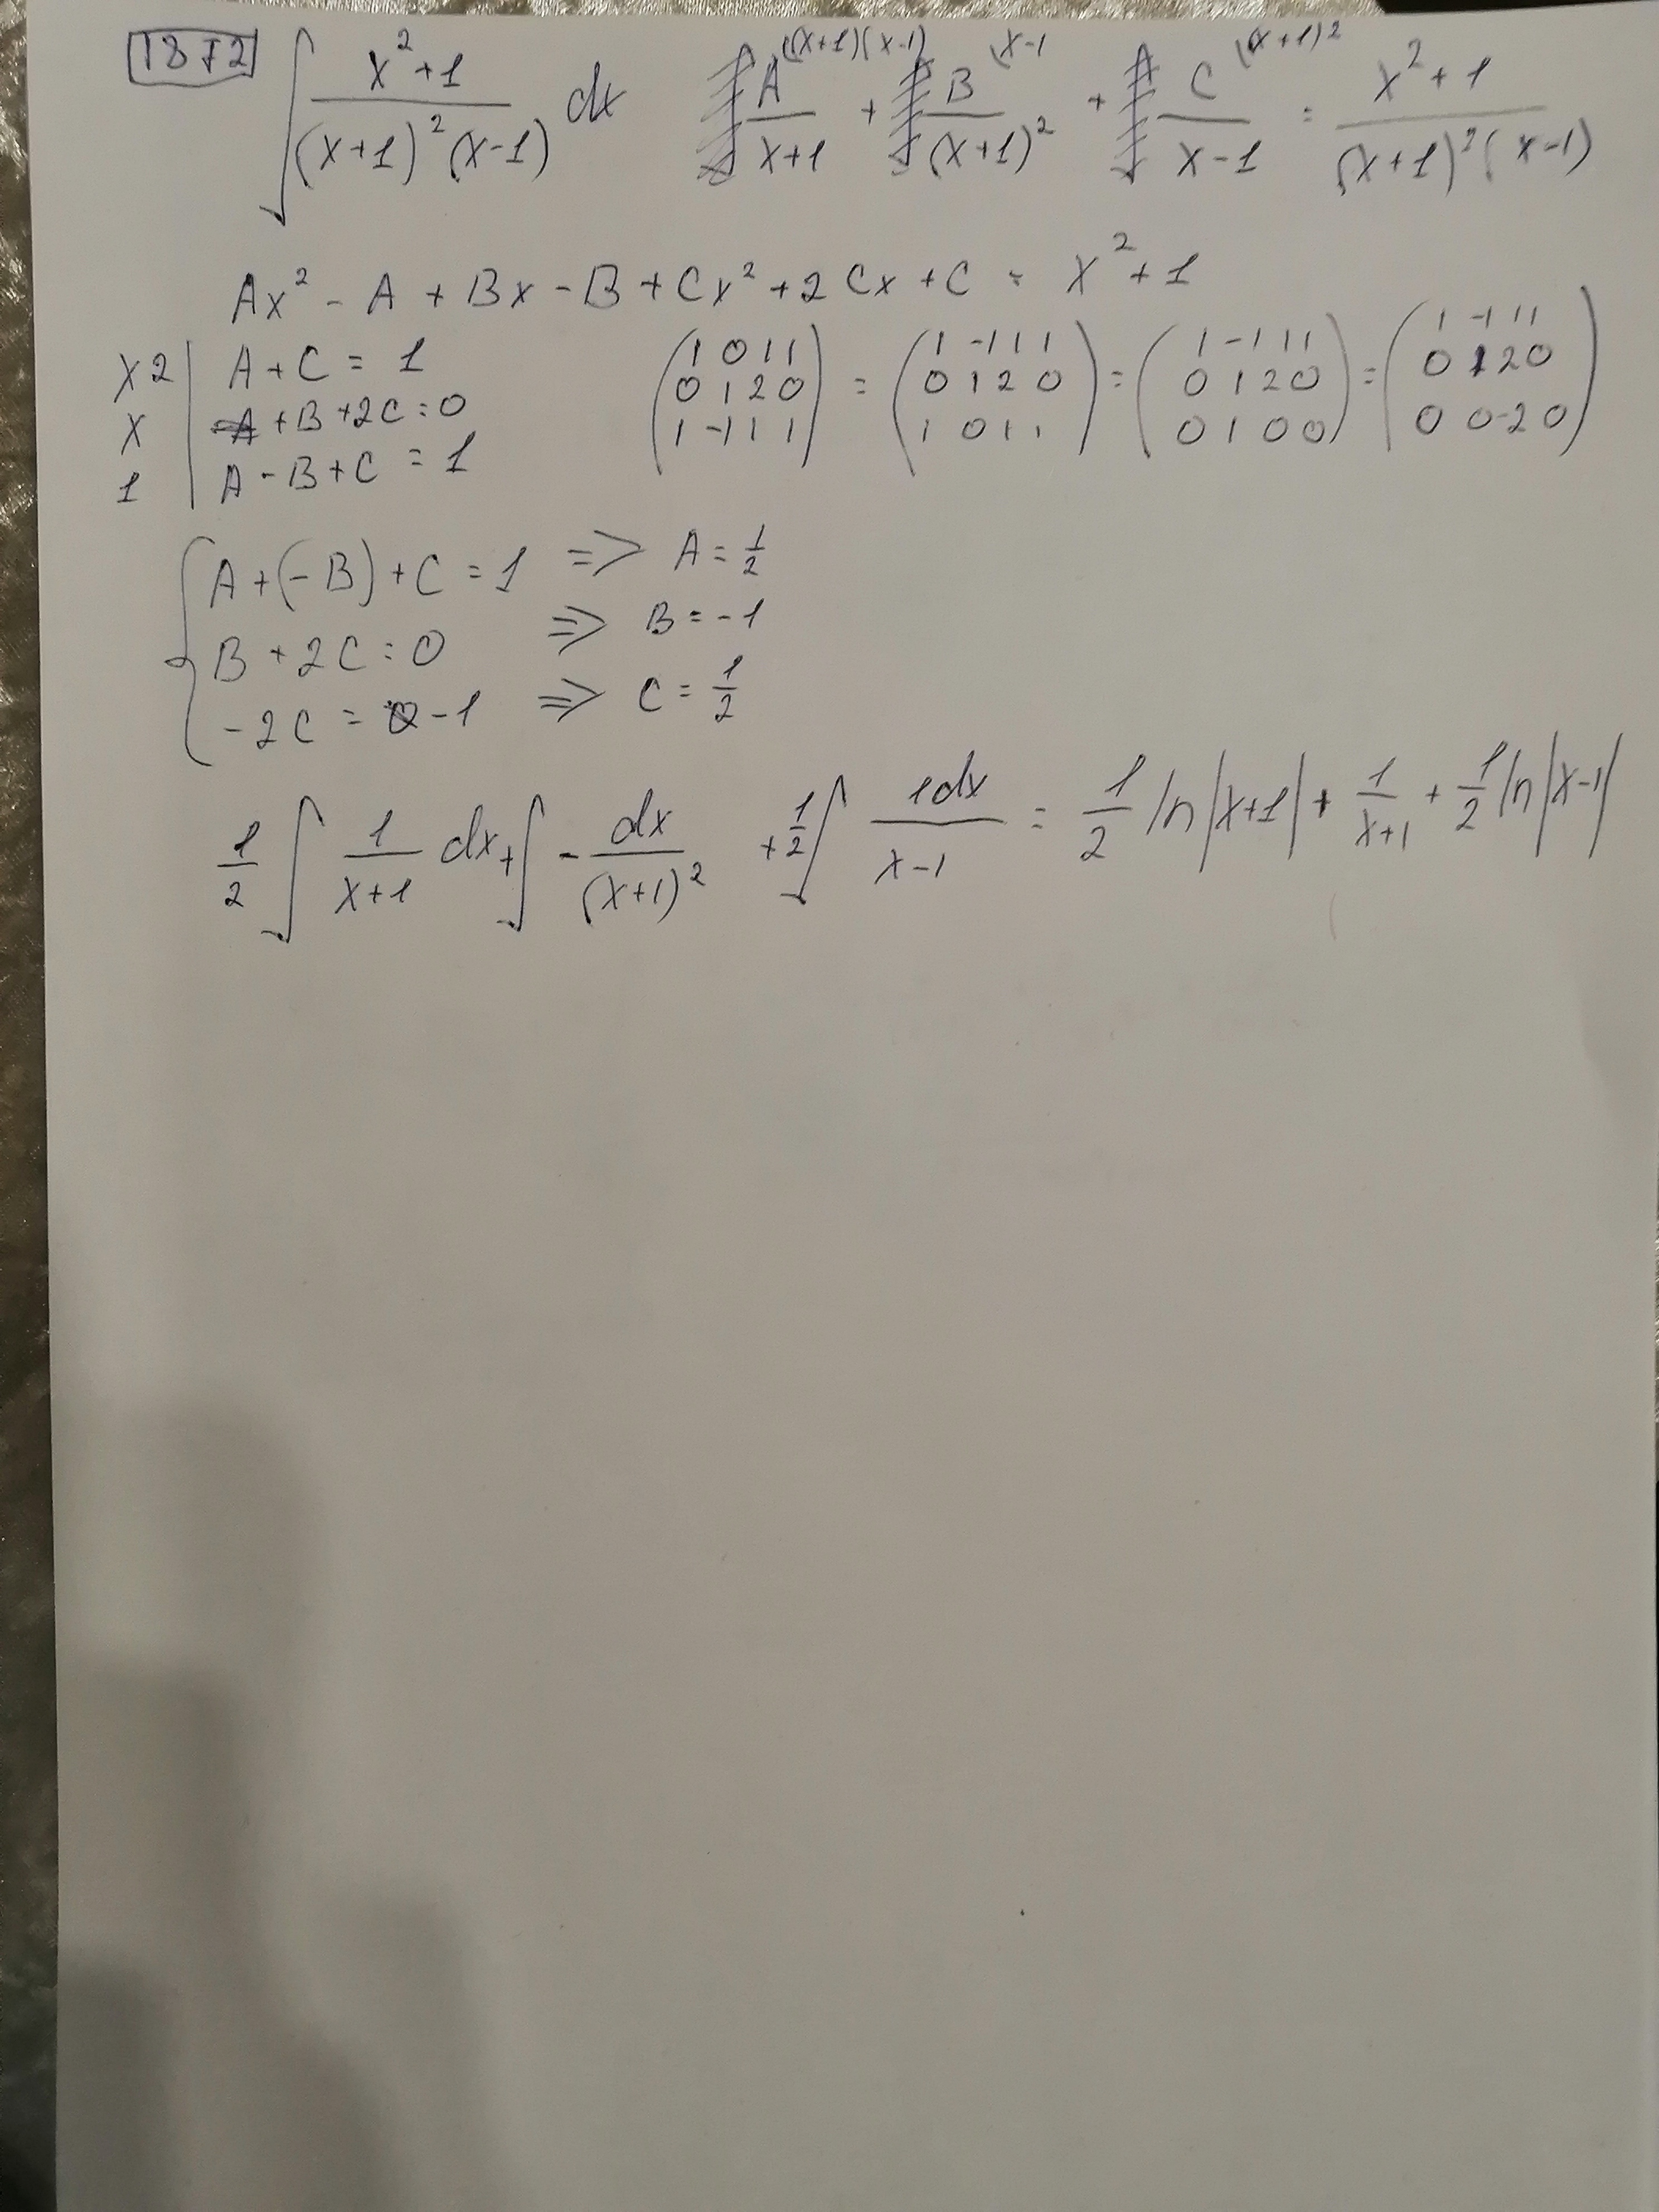 1872 ∫ x²+1 / (x+1)²(x-1) dx A^((x+1)(x-1) / x+1 + B^(x-1 / (x+1)² + C^(x+1)² / x-1 = x²+1 / (x+1)²(x-1)
Ax² - A + Bx - B + Cx² + 2Cx + C = x² + 1
x2 | A + C = 1
x | + B + 2C = 0
1 | A - B + C = 1
(1 0 1 1 / 0 1 2 0 / 1 -1 1 1) = (1 -1 1 1 / 0 1 2 0 / 1 0 1 1) = (1 -1 1 1 / 0 1 2 0 / 0 1 0 0) = (1 -1 1 1 / 0 1 2 0 / 0 0 -2 0)
{ A + (-B) + C = 1 => A = 1/2
B + 2C = 0 => B = -1
-2C = -1 => C = 1/2
1/2 ∫ 1/x+1 dx + ∫ - dx/(x+1)² + 1/2 ∫ 1dx/x-1 = 1/2 ln|x+1| + 1/x+1 + 1/2 ln|x-1|